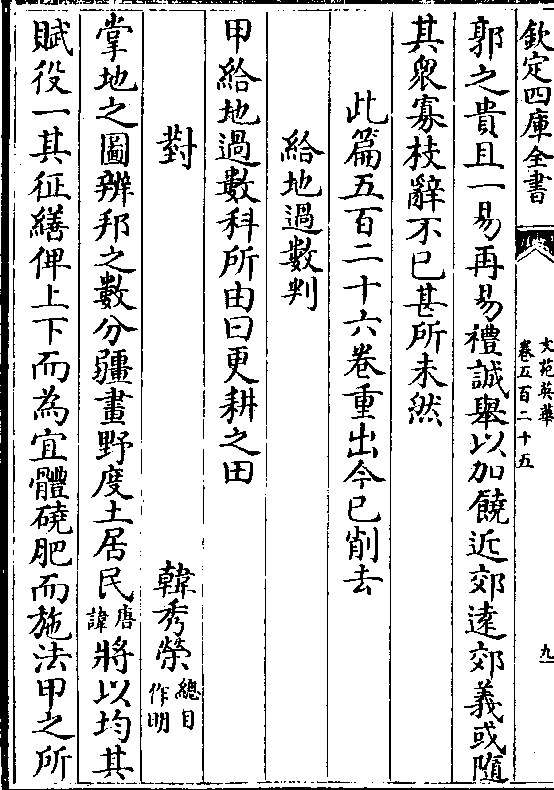 欽定四庫全書
文苑英華
卷五百二十五
九
郭之貴且一易再易禮誠舉以加饒近郊遠郊義或随
其衆寡枝辭不已甚所未然
此篇五百二十六卷重出今已削去
給地過數判
甲給地過數科所由曰更耕之田
對
韓秀榮總目作明
掌地之圖辨邦之數分疆畫野度土居民唐諱將以均其
賦役一其征繕俾上下而為宜體磽肥而施法甲之所